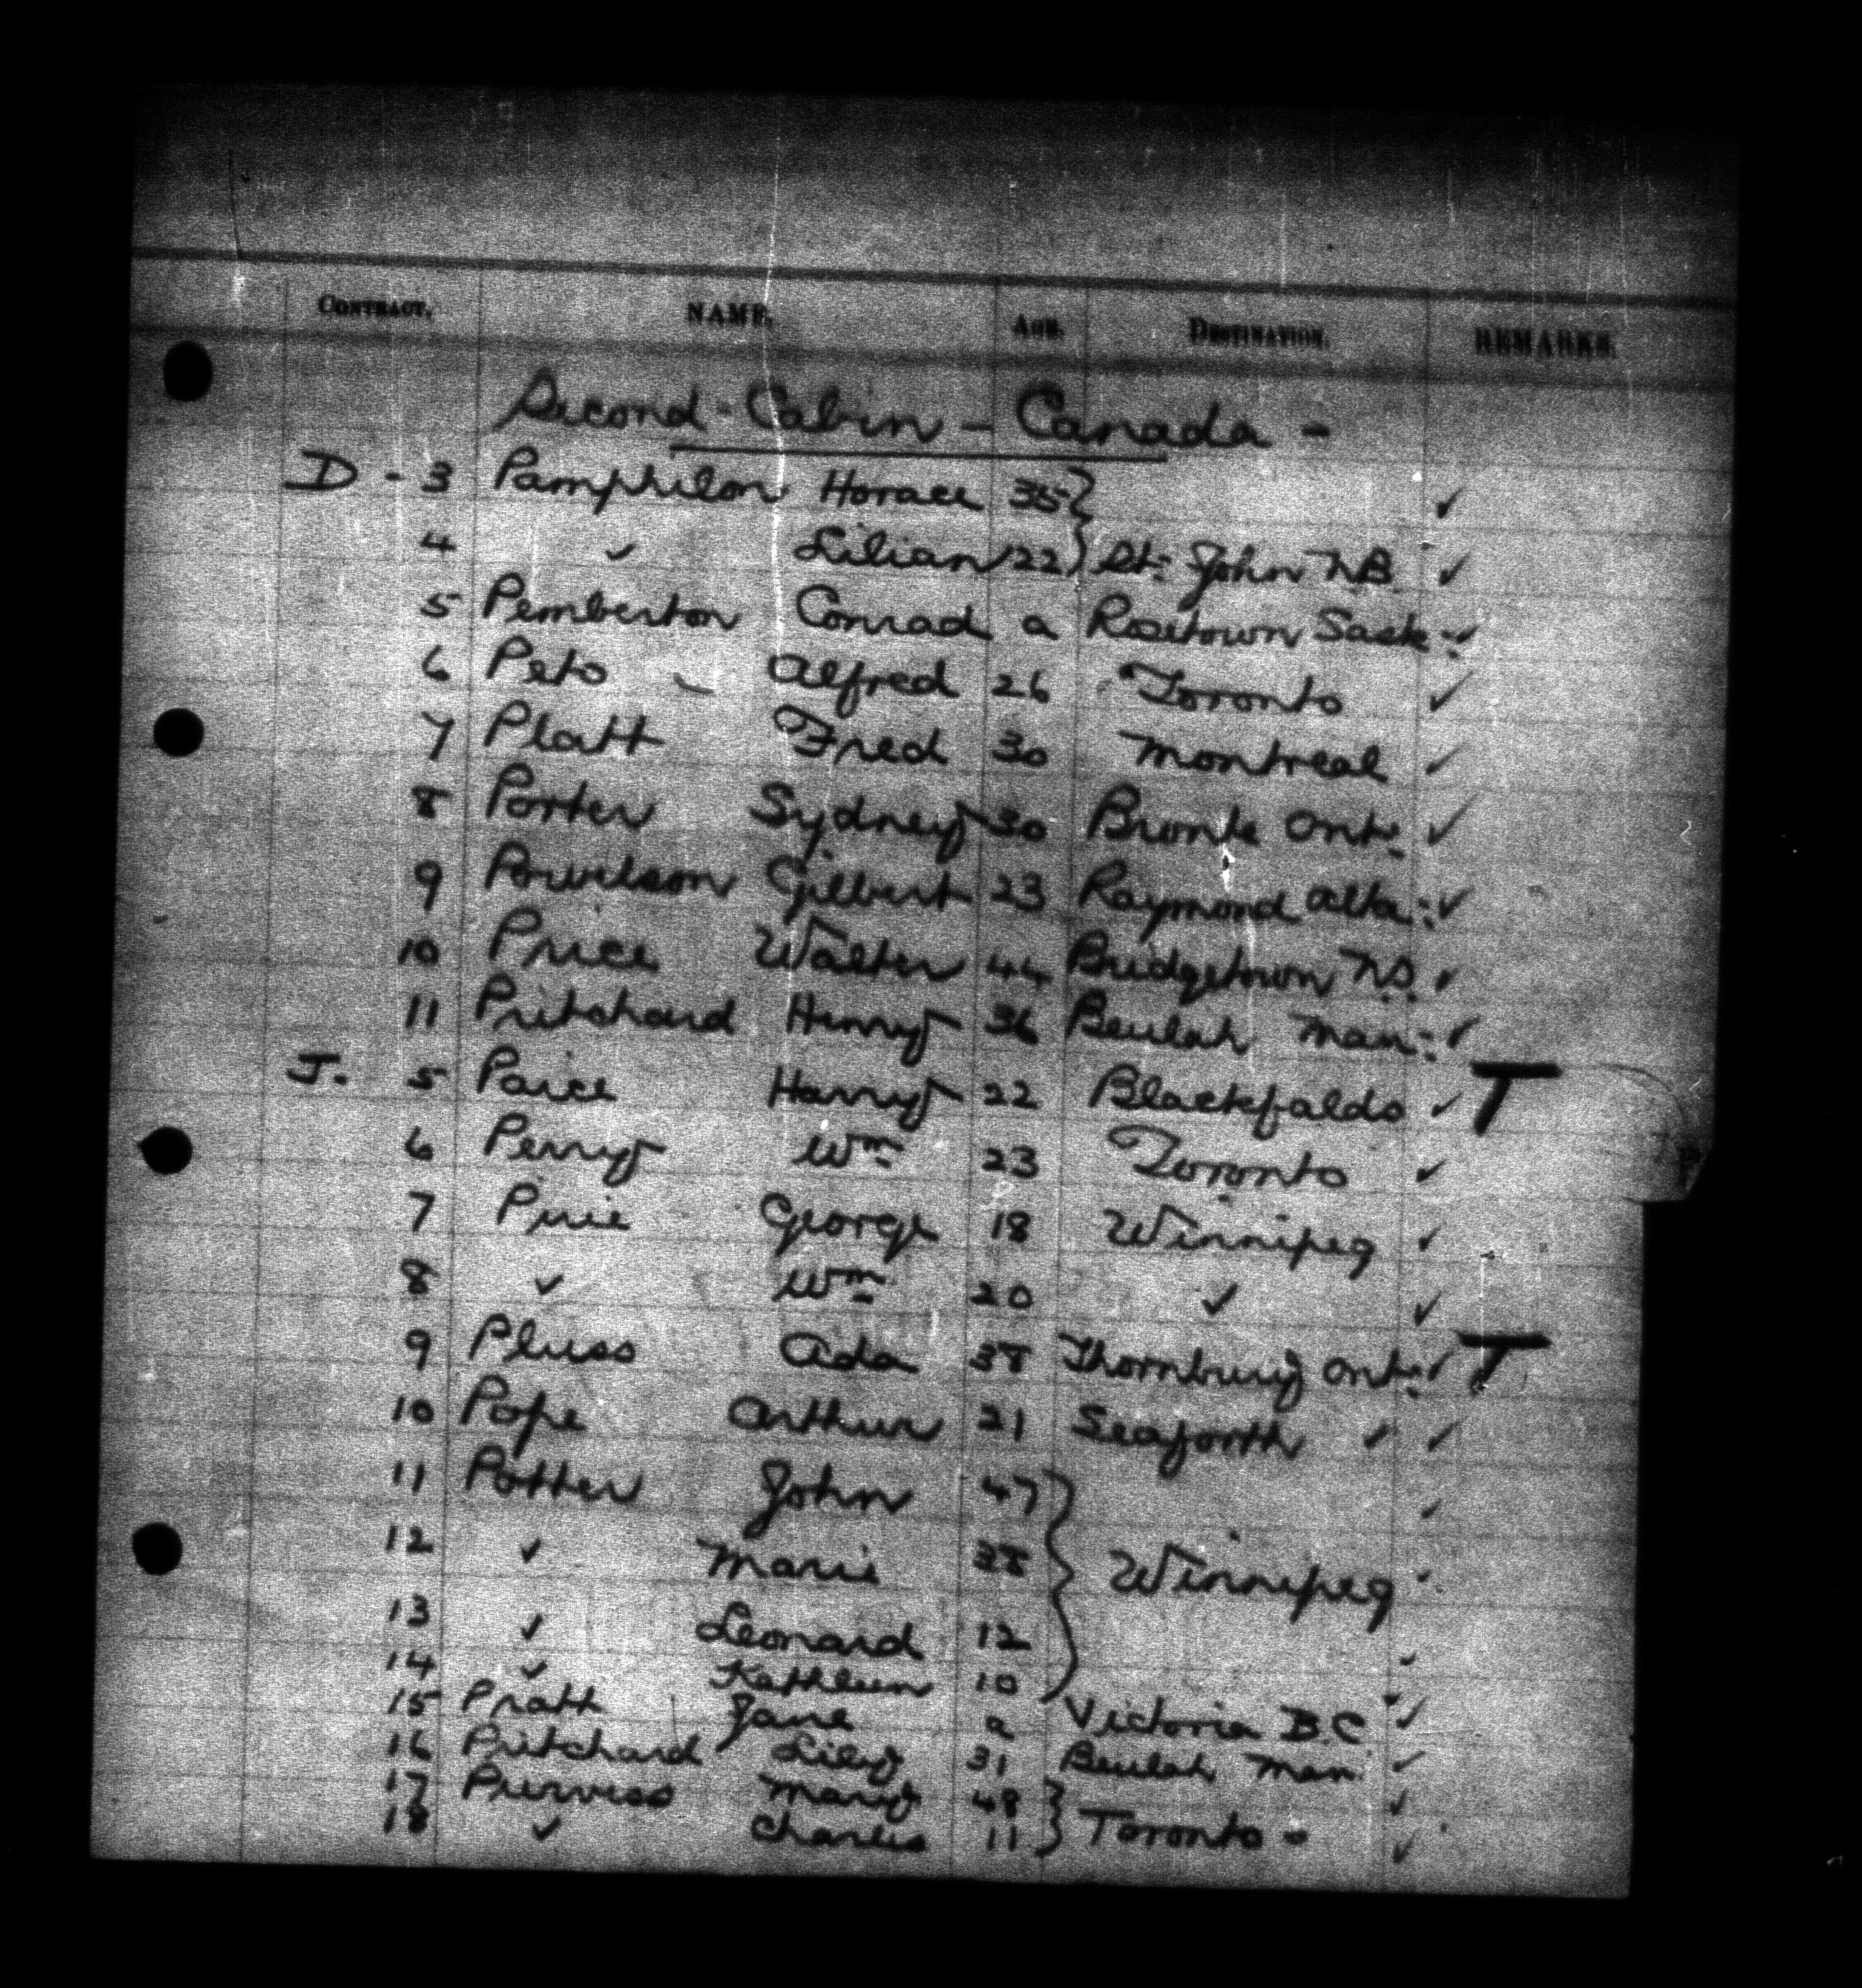 CONTRACT. NAME. AGE. DESTINATION. REMARKS.
Second - Cabin - Canada -
D - 3 Pamphilon Horace 35 } ✓
4 ✓ Lilian 22 } St: John NB ✓
5 Pemberton Conrad a Rosetown Sask: ✓
6 Peto - Alfred 26 Toronto ✓
7 Platt Fred 30 Montreal ✓
8 Porter Sydney 30 Bronte Ont: ✓
9 Powelson Gilbert 23 Raymond Alta: ✓
10 Price Walter 44 Bridgetown N.S. ✓
11 Pritchard Henry 36 Beulah Man: ✓
J. 5 Paice Harry 22 Blackfalds ✓ T
6 Perry Wm 23 Toronto ✓
7 Pirie George 18 Winnipeg ✓
8 ✓ Wm 20 ✓ ✓
9 Pluss Ada 38 Thornbury Ont: ✓ T
10 Pope Arthur 21 Seaforth ✓ ✓
11 Potter John 47 } ✓
12 ✓ Marie 38 } Winnipeg
13 ✓ Leonard 12 }
14 ✓ Kathleen 10 }
15 Pratt Jane a Victoria B.C ✓
16 Pritchard Lily 31 Beulah Man: ✓
17 Purvess Mary 48 } ✓
18 ✓ Charles 11 } Toronto - ✓